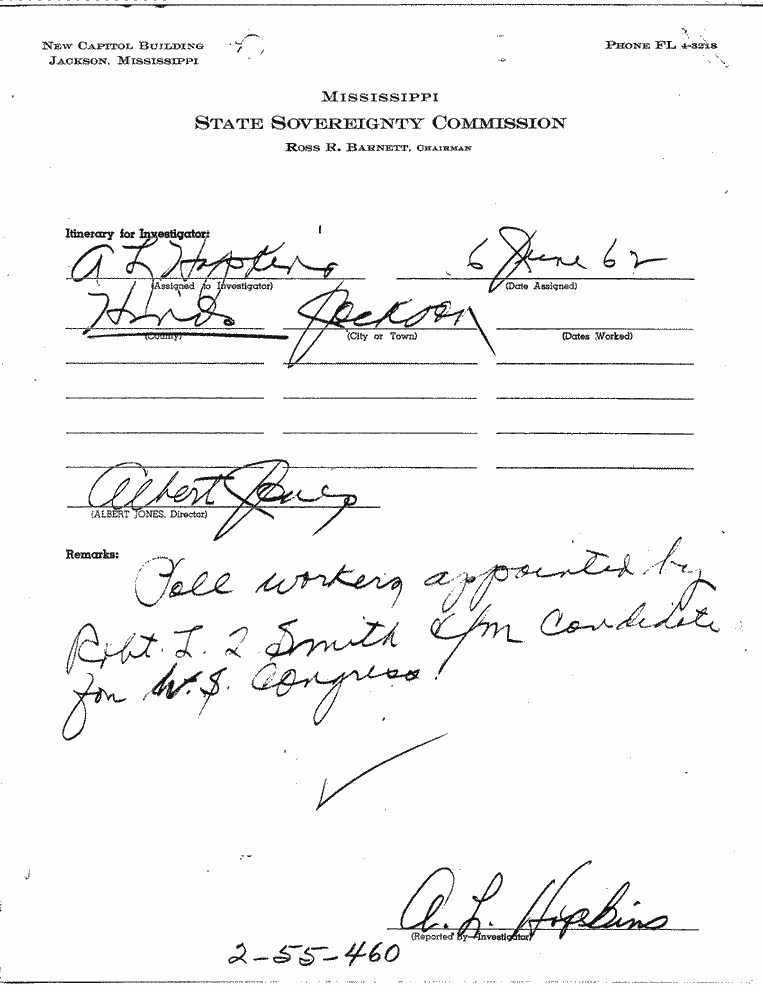 NEW CAPITOL BUILDING
JACKSON, MISSISSIPPI
PHONE FL 4-3218
MISSISSIPPI
STATE SOVEREIGNTY COMMISSION
ROSS R. BARNETT, CHAIRMAN
Itinerary for Investigator:
A L Hopkins 6 June 62
(Assigned to Investigator) (Date Assigned)
Hinds Jackson
(County) (City or Town) (Dates Worked)
Albert Jones
(ALBERT JONES, Director)
Remarks:
Poll workers appointed by
Robt. L. T. Smith C/M Candidate
for U.S. Congress.
A. L. Hopkins
(Reported By—Investigator)
2-55-460